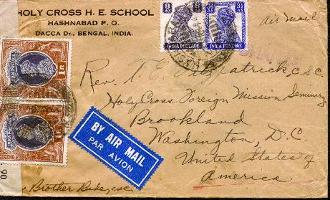 HOLY CROSS H. E. SCHOOL
HASHNABAD P. O.
DACCA Dt., BENGAL, INDIA.
Air Mail
Rev. Fitzpatrick, CSC
Holy Cross Foreign Mission Seminary
Brookland
Washington, D.C.
United States of
America.
BY AIR MAIL
PAR AVION
Brother